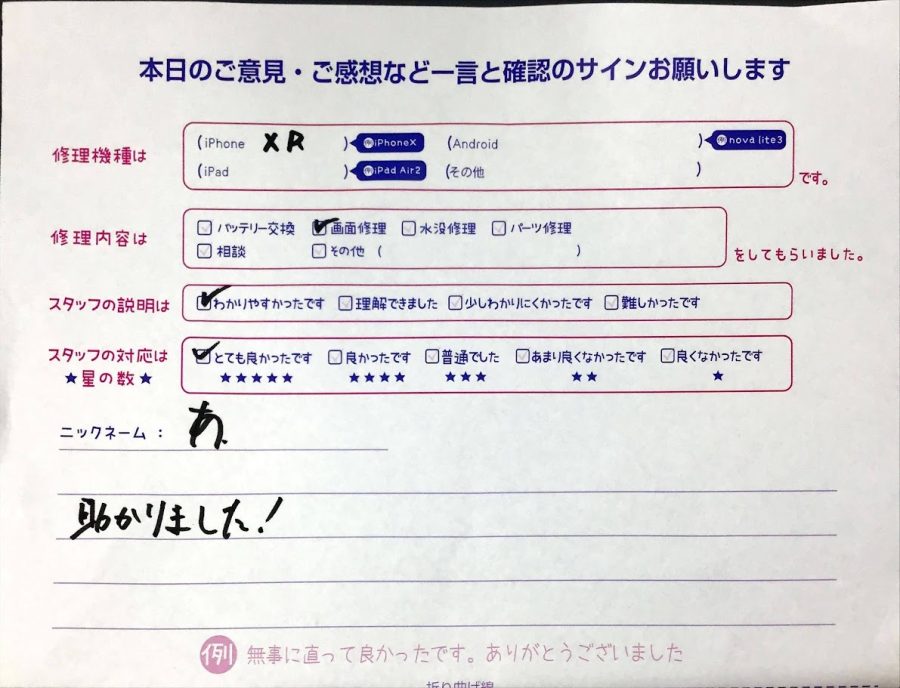 本日のご意見・ご感想など一言と確認のサインお願いします
修理機種は (iPhone XR ) 例iPhoneX (Android ) 例nova lite3
(iPad ) 例iPad Air2 (その他 ) です。
修理内容は バッテリー交換 画面修理 水没修理 パーツ修理
相談 その他 ( ) をしてもらいました。
スタッフの説明は わかりやすかったです 理解できました 少しわかりにくかったです 難しかったです
スタッフの対応は とても良かったです 良かったです 普通でした あまり良くなかったです 良くなかったです
★星の数★ ★★★★★ ★★★★ ★★★ ★★ ★
ニックネーム : あ.
助かりました!
例 無事に直って良かったです。ありがとうございました
折り曲げ線